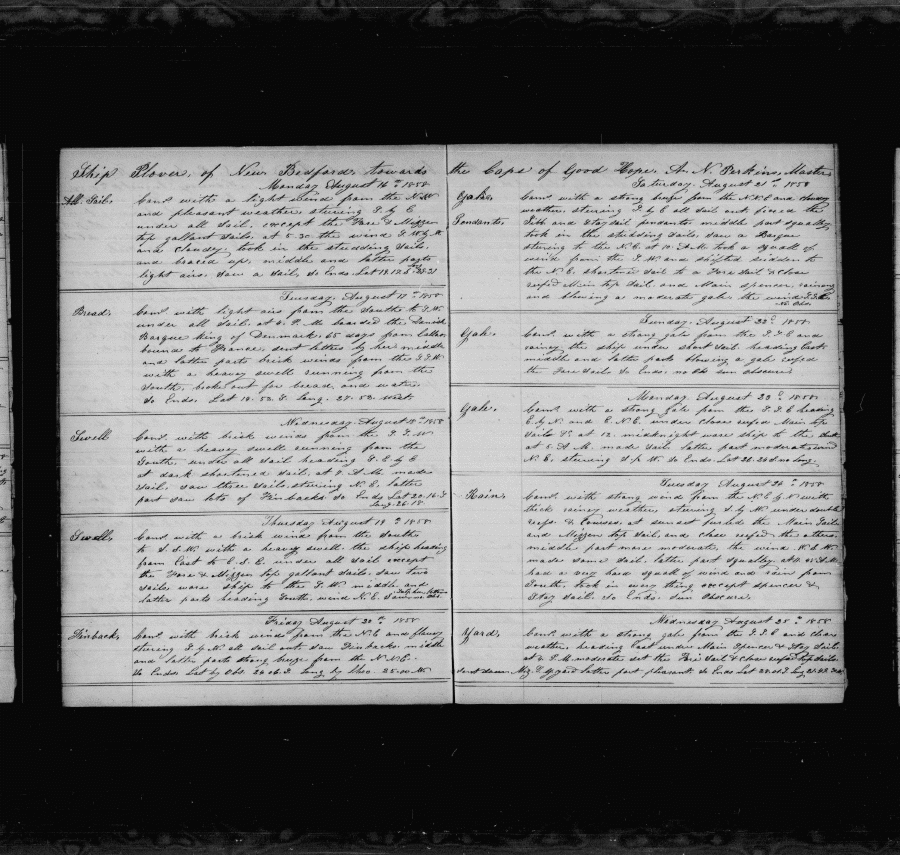 Ship Plover, of New Bedford, towards
Monday August 16th 1858
All Sail. Coms with a light wind from the NNW
and pleasant weather, steering S. by E
under all sail, except the Fore & Mizzen
top gallant sails, at 5.30 the wind S.W. by W
and cloudy, took in the studding sails.
and braced up, middle and latter parts
light airs. Saw a Sail, So Ends. Lat 19.12.S
Tuesday August 17th 1858
Bread. Coms with light airs from the South to S.W.
under all sail. at 4 P.M. boarded the Danish
Barque King of Denmark 65 days from Callao
bound to France, sent letters by her, middle
and latter parts brisk winds from the S.S.W.
with a heavey swell running from the
South, broke out for bread, and water.
So Ends. Lat 19.53.S. Long. 27.52 West.
Wednesday August 18th 1858
Swell Coms with brisk winds from the S.S.W
with a heavey swell running from the
South, under all sail heading S.E. by E
at dark shortened sail, at 6 A.M. made
sail, saw three sails, steering N.E. latter
part saw lots of Finbacks So Ends Lat 20.16.S
Long. 26.18.
Thursday August 19th 1858
Swell. Coms with a brisk wind from the South
to S.S.W. with a heavey swell. the ship heading
from East to E.S.E. under all sail except
the Fore & Mizzen top gallant sails. saw two
sails, wore ship to the S.W. middle and
latter parts heading South, wind N.E.
Friday August 20th 1858
Finback. Coms with brisk winds from the N.E and flawey
steering S. by E all sail out. saw Finbacks. middle
and latter part strong breeze from the N.N.E.
So Ends. Lat by Obs. 23.06.S Long by Chro. 25.00.W.
the Cape of Good Hope. A. N. Perkins, Master
Saturday. August 21st 1858
Gale. Coms with a strong breeze from the N.N.E and cloudy
weather, steering S. by E all sail out, fixed the
Pendants. Jibb and Stay Sail pendants middle part squally,
took in the studding sails, saw a Barque
steering to the N.E. at 10 A.M. took a squall of
wind from the S.W. and shifted sudden to
the N.E. shortened sail to a Fore Sail & close
reefed Main top Sail, and Main spencer, raining
and blowing a moderate gale the wind S.S.E.
No. Obs.
Sunday August 22d 1858
Gale. Coms with a strong gale from the S.S.E and
rainey, the ship under short sail heading East
middle and latter parts blowing a gale reefed
the Fore Sail. So Ends. no Ob sun obscure.
Monday August 23d 1858.
Gale. Coms with a strong gale from the S.S.E heading
E. by N. and E.N.E. under close reefed Main top
Sails &c at 12. midnight wore ship to the
at 6 A.M. made sail, latter part moderate wind
N.E. steering So Ends Lat 26.24.S no Long.
Tuesday August 24th 1858.
Rain. Coms with strong wind from the N.E by N with
thick rainey weather, steering S. by W under double
reefs. & Courses, at sunset furled the Main Sail
and Mizzen top Sail, and close reefed the others.
middle part more moderate, the wind W.S.W.
made some Sail, latter part squally, at 11.
had a very hard squall of wind and rain from
South, took in every thing except spencer &
Stay Sail. So Ends. Sun Obscure.
Wednesday August 25th 1858
Yard Coms with a strong gale from the S.S.E and clear
weather, heading East under Main Spencer & Stay Sail
at 4 P.M. moderate set the Fore Sail & close reefed top Sails.
sent down Miz. T. G yard latter part pleasant So Ends Lat